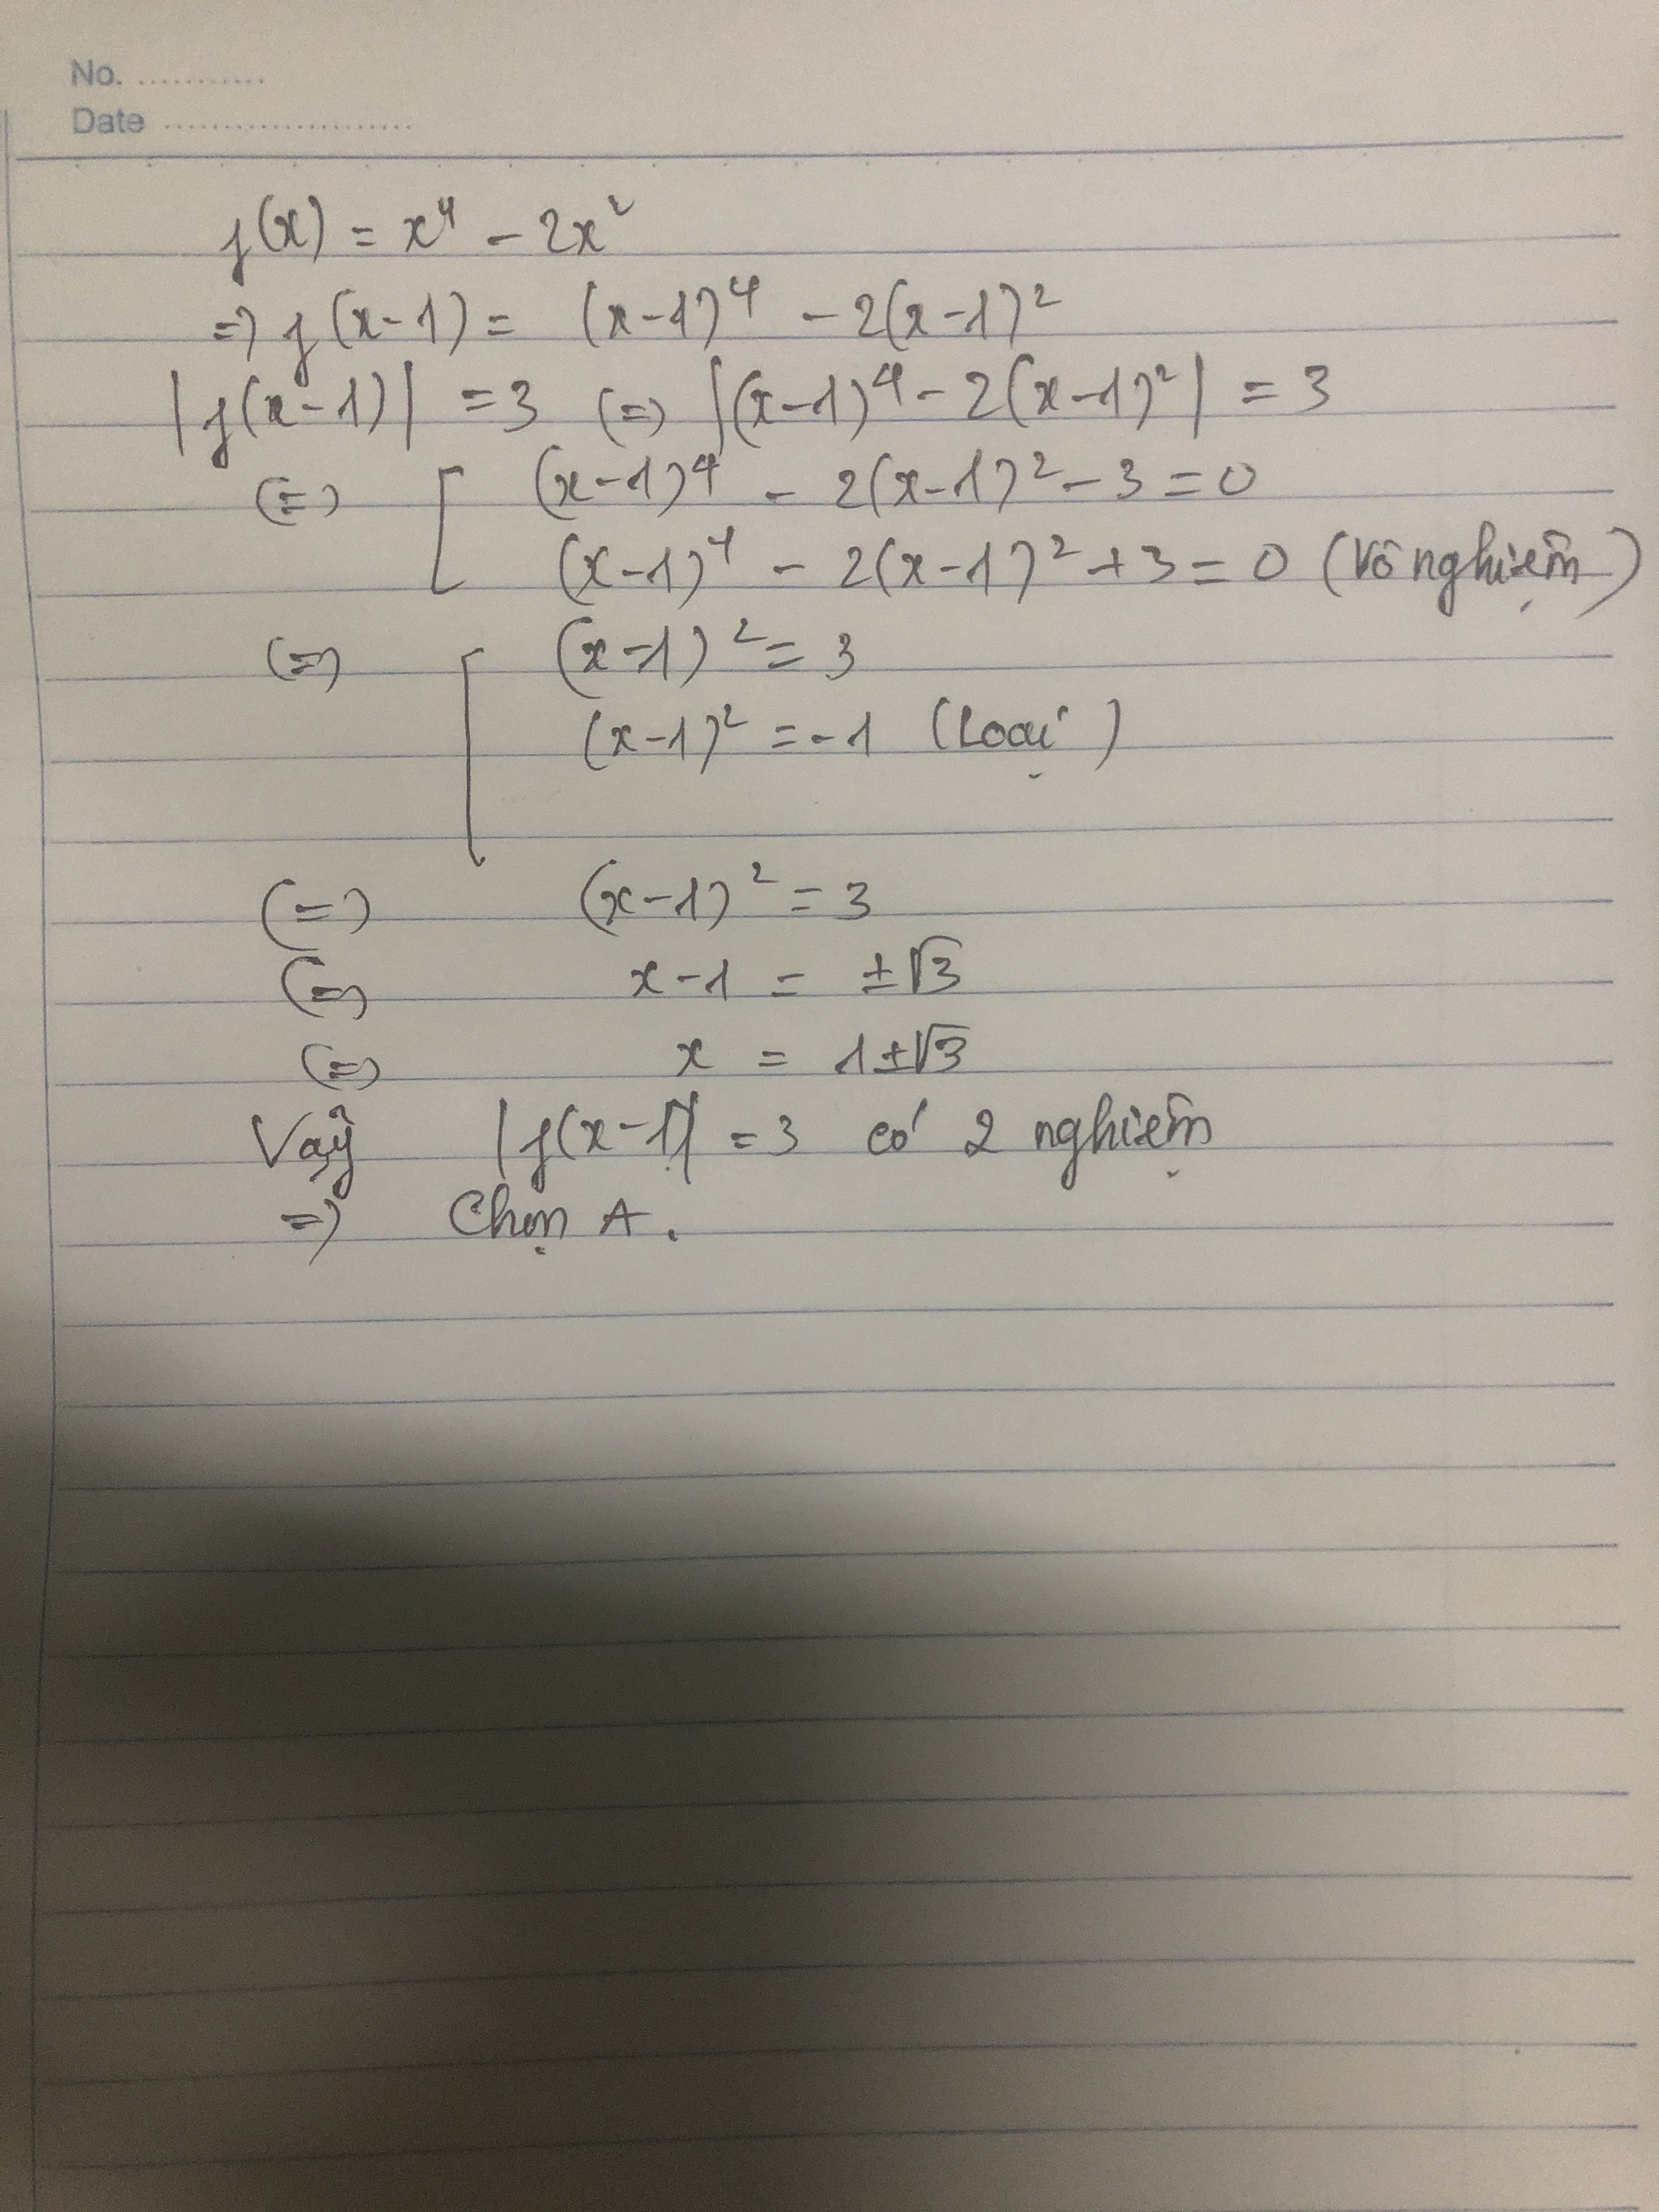 No. ...........
Date .....................
f(x) = x⁴ - 2x²
=> f(x-1) = (x-1)⁴ - 2(x-1)²
|f(x-1)| = 3 (=) |(x-1)⁴ - 2(x-1)²| = 3
(=) [ (x-1)⁴ - 2(x-1)² - 3 = 0
(x-1)⁴ - 2(x-1)² + 3 = 0 (Vô nghiệm)
(=) [ (x-1)² = 3
(x-1)² = -1 (Loại)
(=) (x-1)² = 3
(=) x-1 = ±√3
(=) x = 1±√3
Vậy |f(x-1)| = 3 có 2 nghiệm
=> Chọn A.